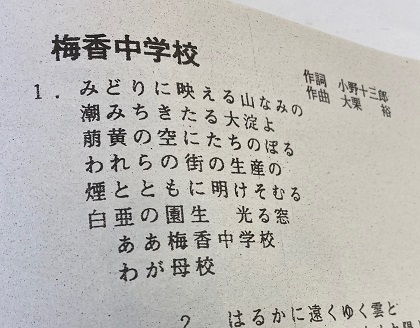 梅香中学校
作詞 小野十三郎
作曲 大栗 裕
1. みどりに映える山なみの
潮みちきたる大淀よ
萠黄の空にたちのぼる
われらの街の生産の
煙とともに明けそむる
白亜の園生 光る窓
ああ梅香中学校
わが母校
2 はるかに遠くゆく雲と